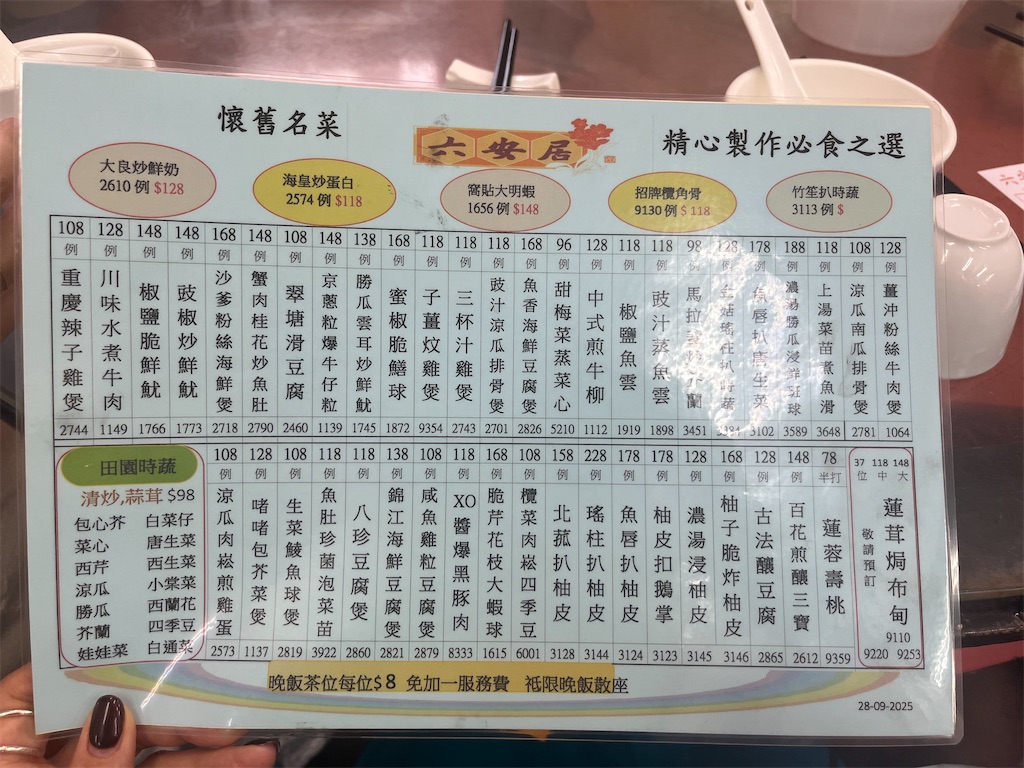 懷舊名菜
六安居
精心製作必食之選
大良炒鮮奶
2610 例 $128
海皇炒蛋白
2574 例 $118
窩貼大明蝦
1656 例 $148
招牌欖角骨
9130 例 $118
竹笙扒時蔬
3113 例 $
108 例 重慶辣子雞煲 2744
128 例 川味水煮牛肉 1149
148 例 椒鹽脆鮮魷 1766
148 例 豉椒炒鮮魷 1773
168 例 沙爹粉絲海鮮煲 2718
148 例 蟹肉桂花炒魚肚 2790
108 例 翠塘滑豆腐 2460
148 例 京蔥粒爆牛仔粒 1139
138 例 勝瓜雲耳炒鮮魷 1745
168 例 蜜椒脆鱔球 1872
118 例 子薑炆雞煲 9354
118 例 三杯汁雞煲 2743
118 例 豉汁涼瓜排骨煲 2701
168 例 魚香海鮮豆腐煲 2826
96 例 甜梅菜蒸菜心 5210
128 例 中式煎牛柳 1112
118 例 椒鹽魚雲 1919
118 例 豉汁蒸魚雲 1898
98 例 馬拉盞炒芥蘭 3451
128 例 瑤柱扒時蔬
178 例 魚唇扒唐生菜 3102
188 例 濃湯勝瓜浸鮮斑球 3589
118 例 上湯菜苗煮魚滑 3648
108 例 涼瓜南瓜排骨煲 2781
128 例 薑沖粉絲牛肉煲 1064
田園時蔬
清炒,蒜茸 $98
包心芥 白菜仔
菜心 唐生菜
西芹 西生菜
涼瓜 小棠菜
勝瓜 西蘭花
芥蘭 四季豆
娃娃菜 白通菜
108 例 涼瓜肉崧煎雞蛋 2573
128 例 啫啫包芥菜煲 1137
108 例 生菜鯪魚球煲 2819
118 例 魚肚珍菌泡菜苗 3922
118 例 八珍豆腐煲 2860
138 例 錦江海鮮豆腐煲 2821
108 例 咸魚雞粒豆腐煲 2879
118 例 XO醬爆黑豚肉 8333
168 例 脆芹花枝大蝦球 1615
108 例 欖菜肉崧四季豆 6001
158 例 北菰扒柚皮 3128
228 例 瑤柱扒柚皮 3144
178 例 魚唇扒柚皮 3124
178 例 柚皮扣鵝掌 3123
128 例 濃湯浸柚皮 3145
168 例 柚子脆炸柚皮 3146
128 例 古法釀豆腐 2865
148 例 百花煎釀三寶 2612
78 半打 蓮蓉壽桃 9359
37 118 148
位 中 大
蓮茸焗布甸
敬請預訂
9110
9220 9253
晚飯茶位每位$8 免加一服務費 祗限晚飯散座
28-09-2025